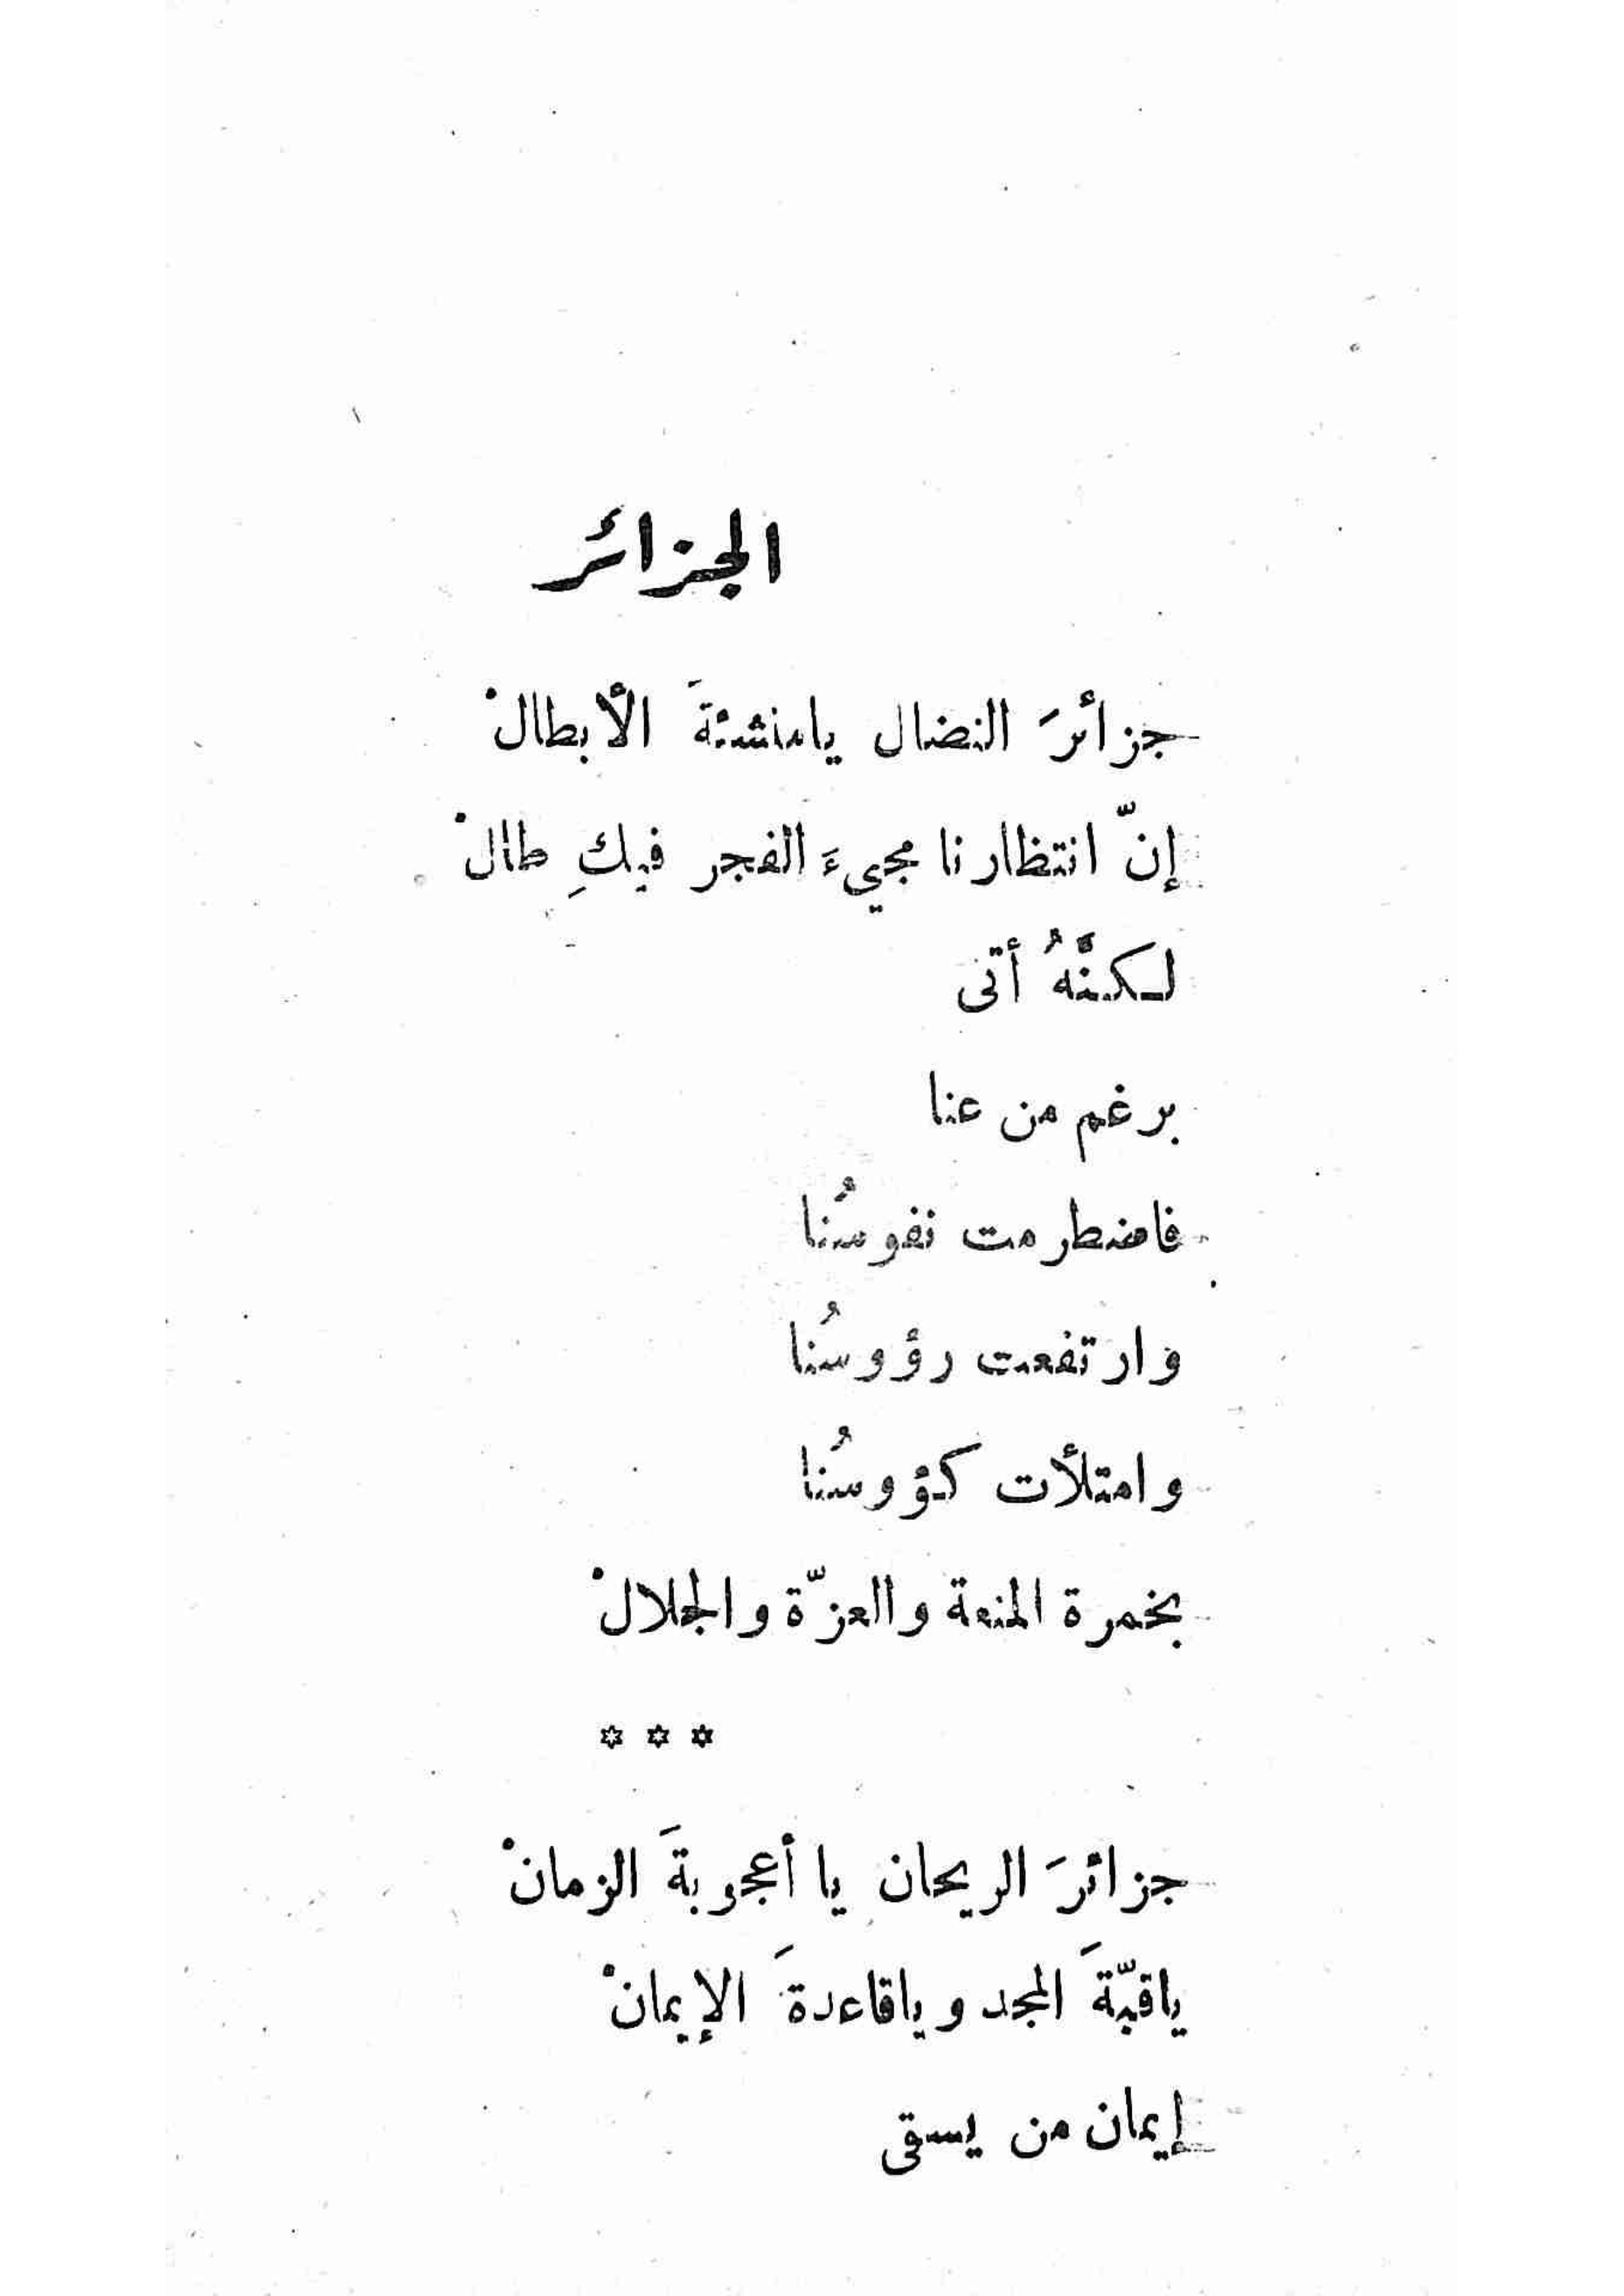 الجزائر
جزائرَ النضال يامنشئةَ الأبطالْ
إنّ انتظارنا مجيءَ الفجر فيكِ طالْ
لكنَّهُ أتى
برغم من عنا
فاضطرمت نفوسُنا
وارتفعت رؤوسُنا
وامتلأت كؤوسُنا
بخمرة المنعة والعزّة والجلالْ
* * *
جزائرَ الريحان يا أعجوبةَ الزمانْ
ياقبّةَ المجد وياقاعدةَ الإيمانْ
إيمان من يسقى